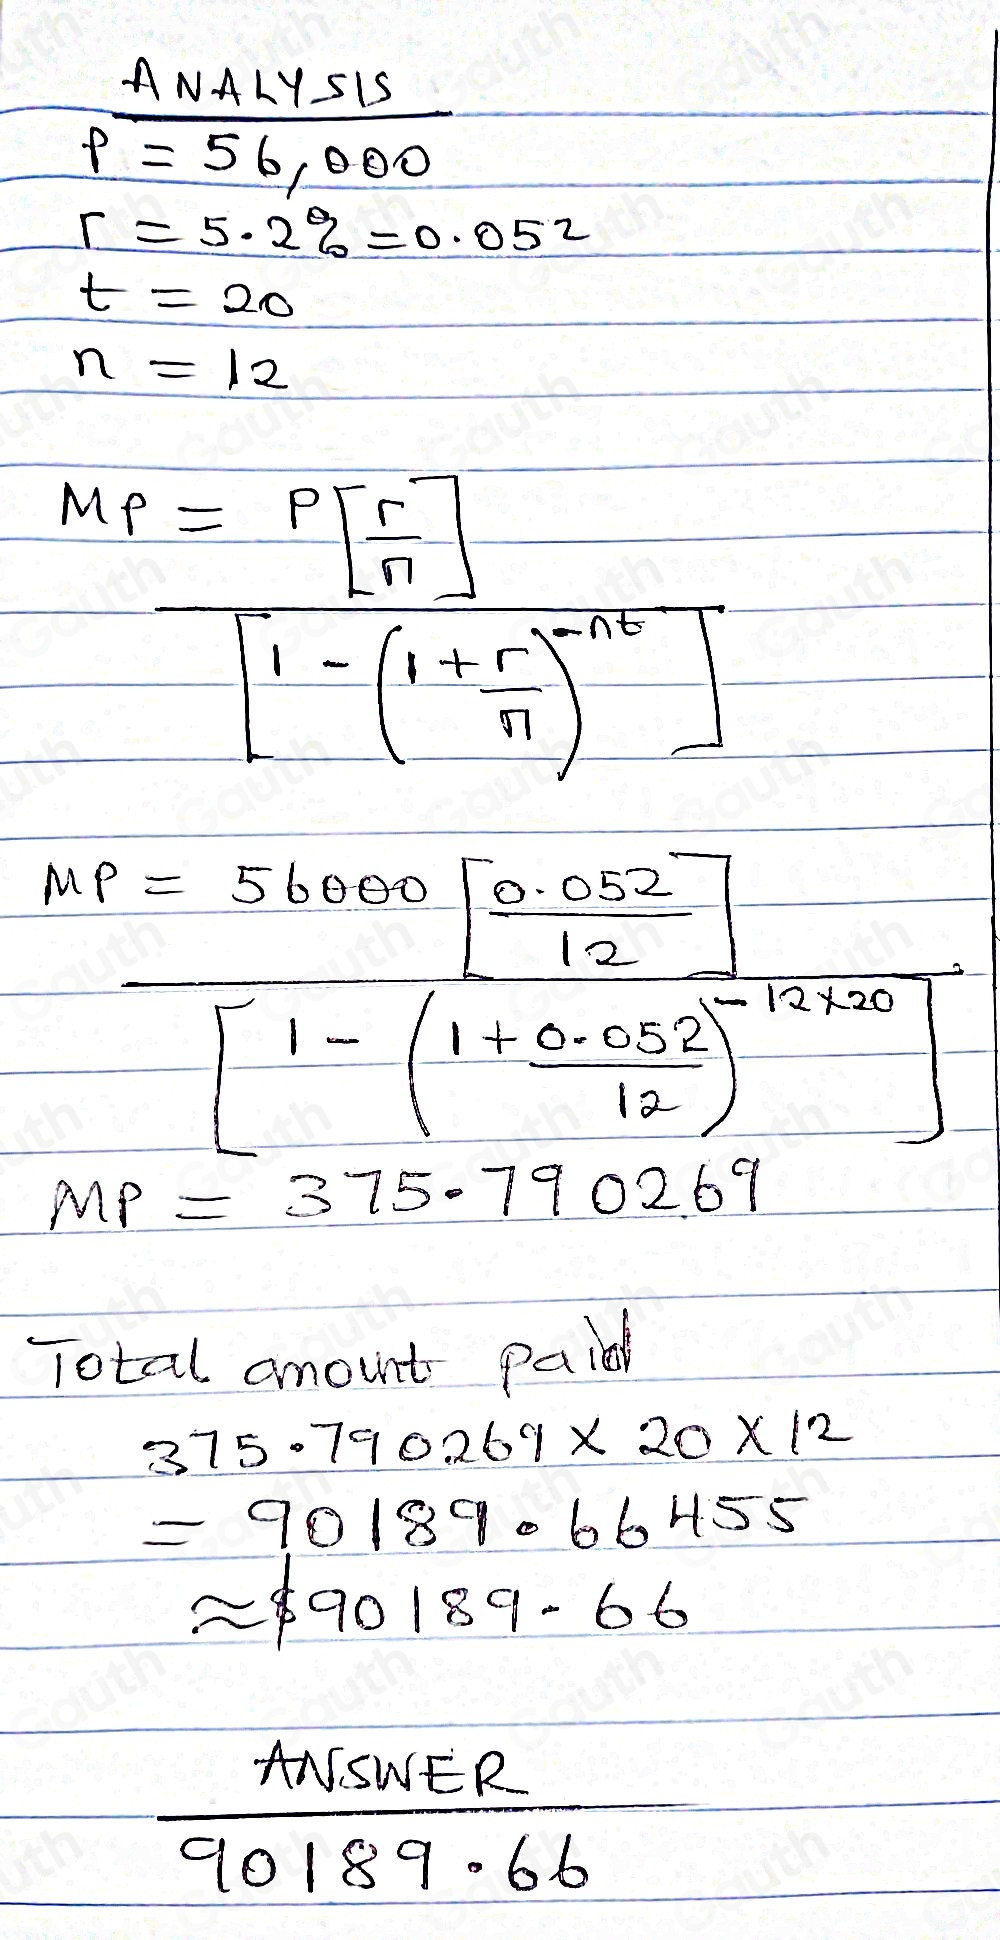 ANALYSIS
P = 56,000
r = 5.2% = 0.052
t = 20
n = 12
MP = P[r/n]
[1 - (1 + r/n)^-nt]
MP = 56000 [0.052/12]
[1 - (1 + 0.052/12)^-12×20]
MP = 375.790269
Total amount paid
375.790269 × 20 × 12
= 90189.66455
≈ $90189.66
ANSWER
90189.66